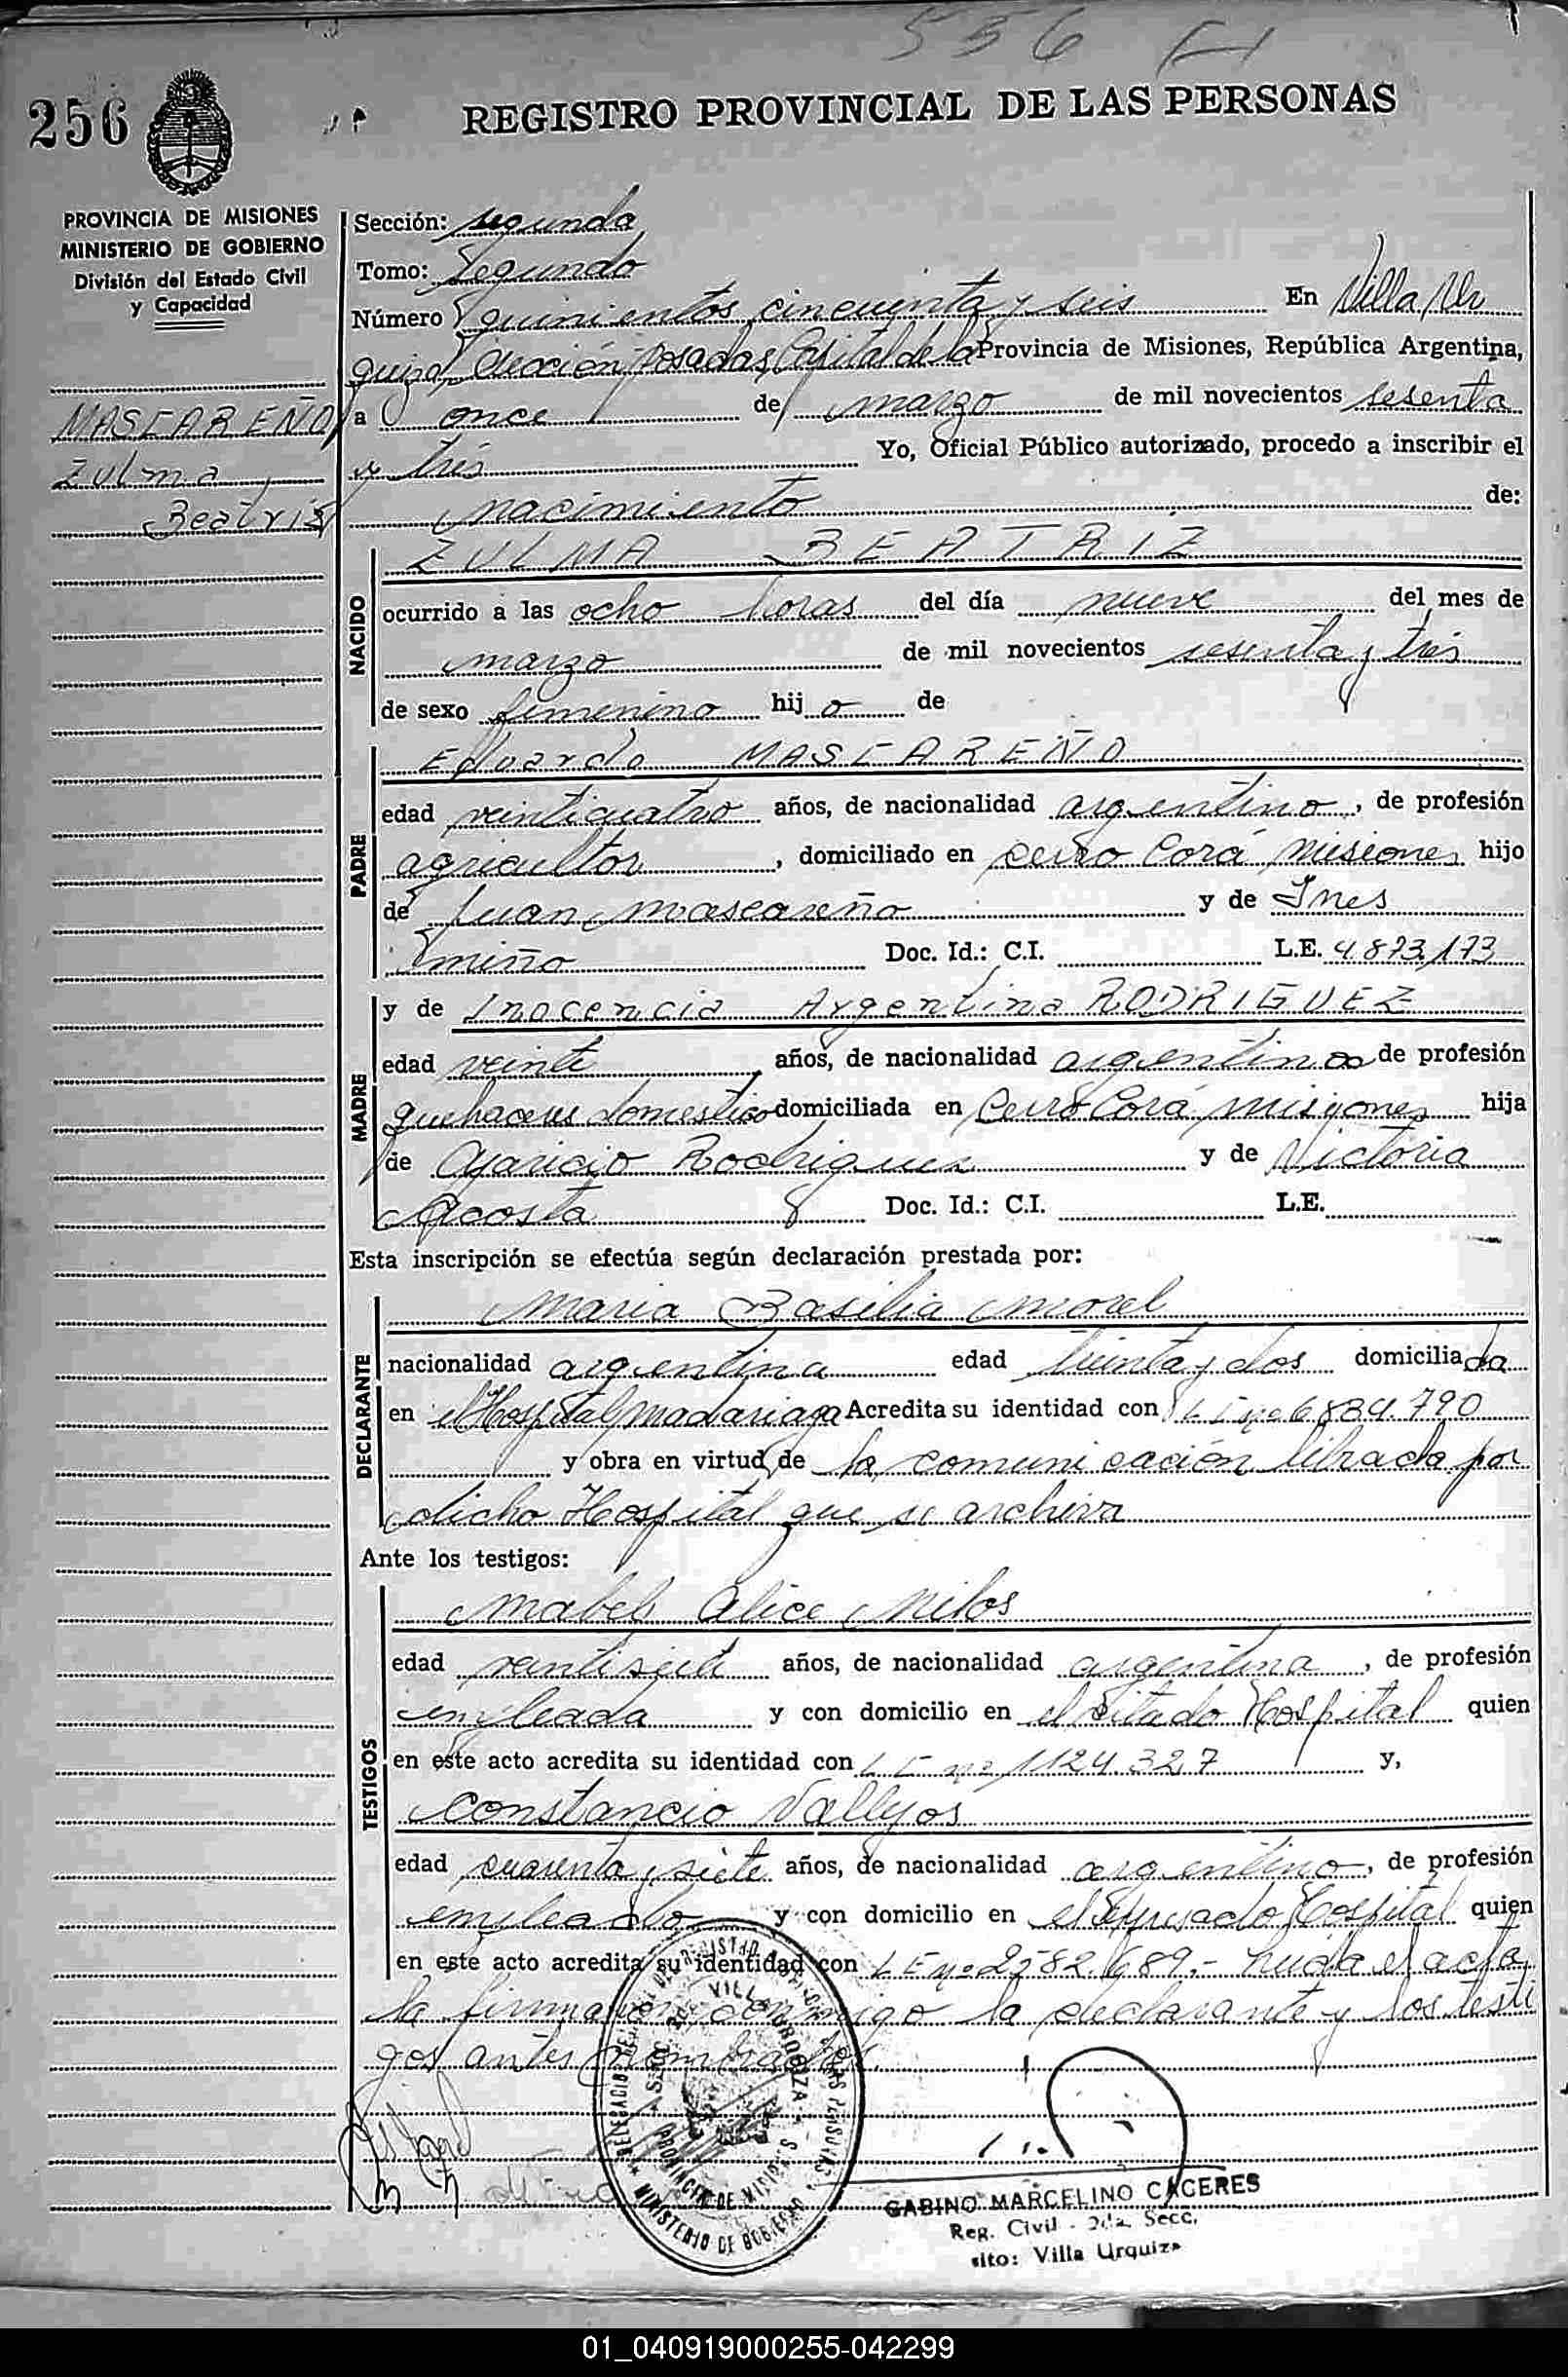 556
256
REGISTRO PROVINCIAL DE LAS PERSONAS
PROVINCIA DE MISIONES
MINISTERIO DE GOBIERNO
División del Estado Civil
y Capacidad
MASCAREÑO,
Zulma
Beatriz
Sección: segunda
Tomo: Segundo
Número quinientos cincuenta y seis En Villa Ur
quiza, sección Posadas, Capital de la Provincia de Misiones, República Argentina,
a once de marzo de mil novecientos sesenta
y tres Yo, Oficial Público autorizado, procedo a inscribir el
nacimiento de:
NACIDO
ZULMA BEATRIZ
ocurrido a las ocho horas del día nueve del mes de
marzo de mil novecientos sesenta y tres
de sexo femenino hij o de
PADRE
Eduardo MASCAREÑO
edad veinticuatro años, de nacionalidad argentino, de profesión
agricultor, domiciliado en Cerro Corá Misiones hijo
de Juan Mascareño y de Ines
Miño Doc. Id.: C.I. L.E. 4.873.173
MADRE
y de Inocencia Argentina RODRIGUEZ
edad veinte años, de nacionalidad argentina de profesión
quehaceres domestico domiciliada en Cerro Corá Misiones hija
de Aparicio Rodriguez y de Victoria
Acosta Doc. Id.: C.I. L.E.
Esta inscripción se efectúa según declaración prestada por:
DECLARANTE
Maria Basilia Morel
nacionalidad argentina edad treinta y dos domiciliada
en el Hospital Madariaga Acredita su identidad con L E nº 6884.790
y obra en virtud de la comunicación librada por
dicho Hospital que se archiva
Ante los testigos:
TESTIGOS
Mabel Alice Milos
edad veintisiete años, de nacionalidad argentina, de profesión
empleada y con domicilio en el citado Hospital quien
en este acto acredita su identidad con L E nº 1124.327 y,
Constancio Vallejos
edad cuarenta y siete años, de nacionalidad argentino, de profesión
empleado y con domicilio en el Hospital quien
en este acto acredita su identidad con L E nº 2582.689.- Leida el acta
la firmaron conmigo la declarante y los testi
gos antes nombrados.
PROVINCIA DE MISIONES
MINISTERIO DE GOBIERNO
GABINO MARCELINO CACERES
Reg. Civil - 2da. Secc.
sito: Villa Urquiza
01_040919000255-042299